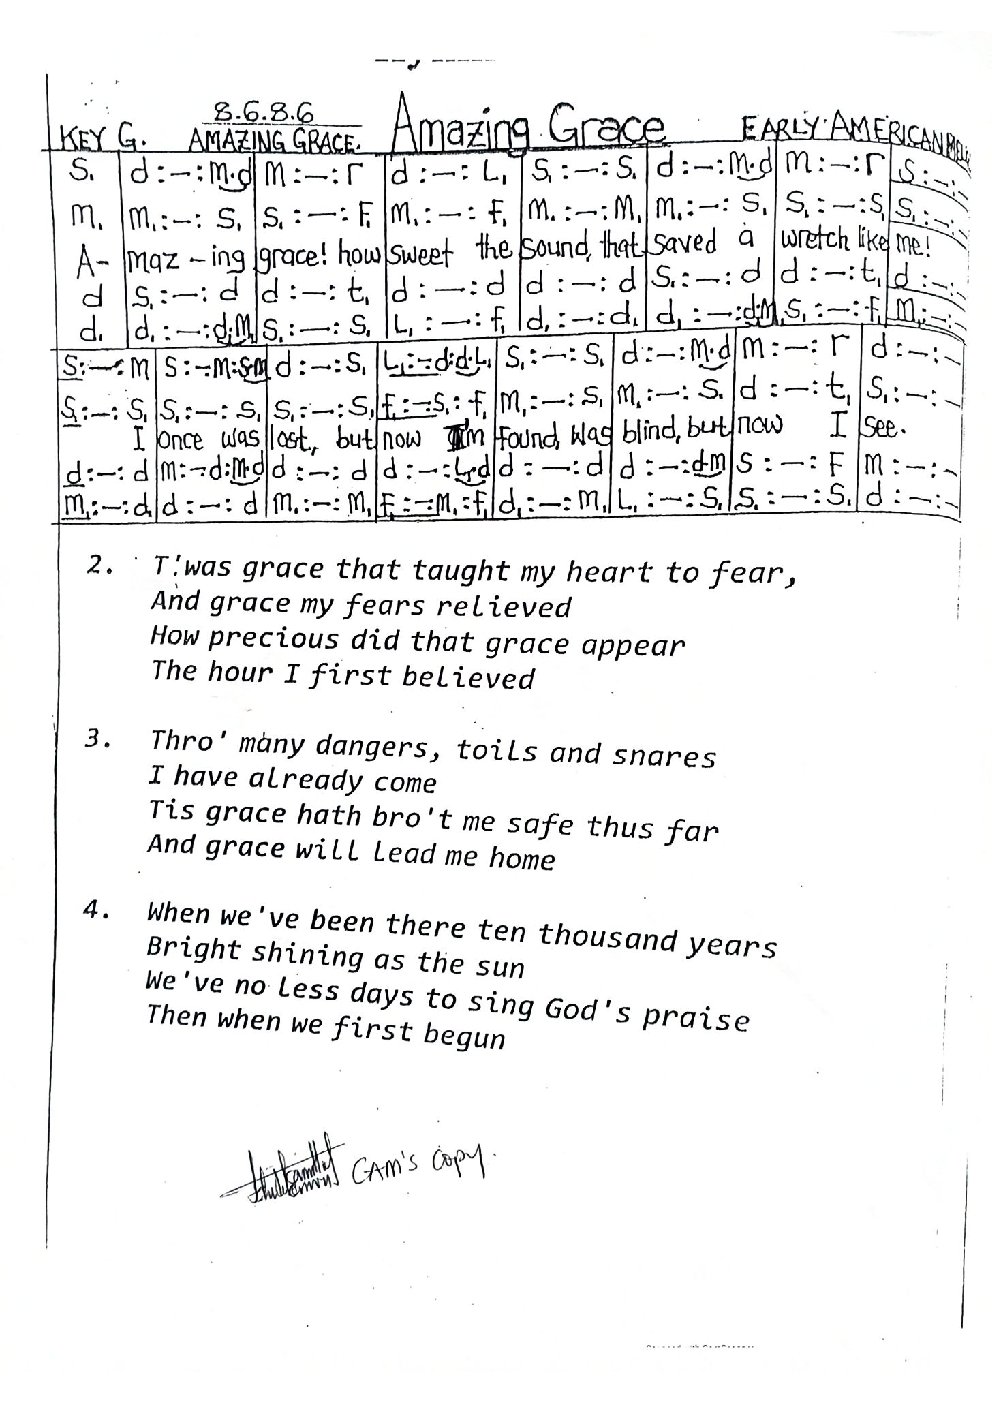 8.6.8.6
KEY G. AMAZING GRACE. Amazing Grace EARLY AMERICAN
S. d:–:m.d m:–:r d:–:L, S,:–:S. d:–:m.d m:–:r S:–:–
m. m,:–:S, S,:–:F, m,:–:F, m,:–:m, m,:–:S, S,:–:S, S,:–:–
A- maz-ing grace! how sweet the sound, that saved a wretch like me!
d S,:–:d d:–:t, d:–:d d:–:d S,:–:d d:–:t, d:–:–
d. d,:–:d.m, S,:–:S, L,:–:f, d,:–:d, d,:–:d.m, S,:–:F, m,:–:–
S:–:m S:–.m:s.m d:–:S, L,:–.d:d.L, S,:–:S, d:–:m.d m:–:r d:–:–
S,:–:S, S,:–:S, S,:–:S, F,:–.S,:f, m,:–:S, m,:–:S, d:–:t, S,:–:–
I once was lost, but now I'm found, was blind, but now I see.
d:–:d m:–.d:m.d d:–:d d:–:L,.d d:–:d d:–:d.m S:–:F m:–:–
m,:–:d, d:–:d m,:–:m, F,:–.m,:f, d,:–:m, L,:–:S, S,:–:S, d:–:–
2. T'was grace that taught my heart to fear,
And grace my fears relieved
How precious did that grace appear
The hour I first believed
3. Thro' many dangers, toils and snares
I have already come
Tis grace hath bro't me safe thus far
And grace will lead me home
4. When we've been there ten thousand years
Bright shining as the sun
We've no less days to sing God's praise
Then when we first begun
GAM's copy.